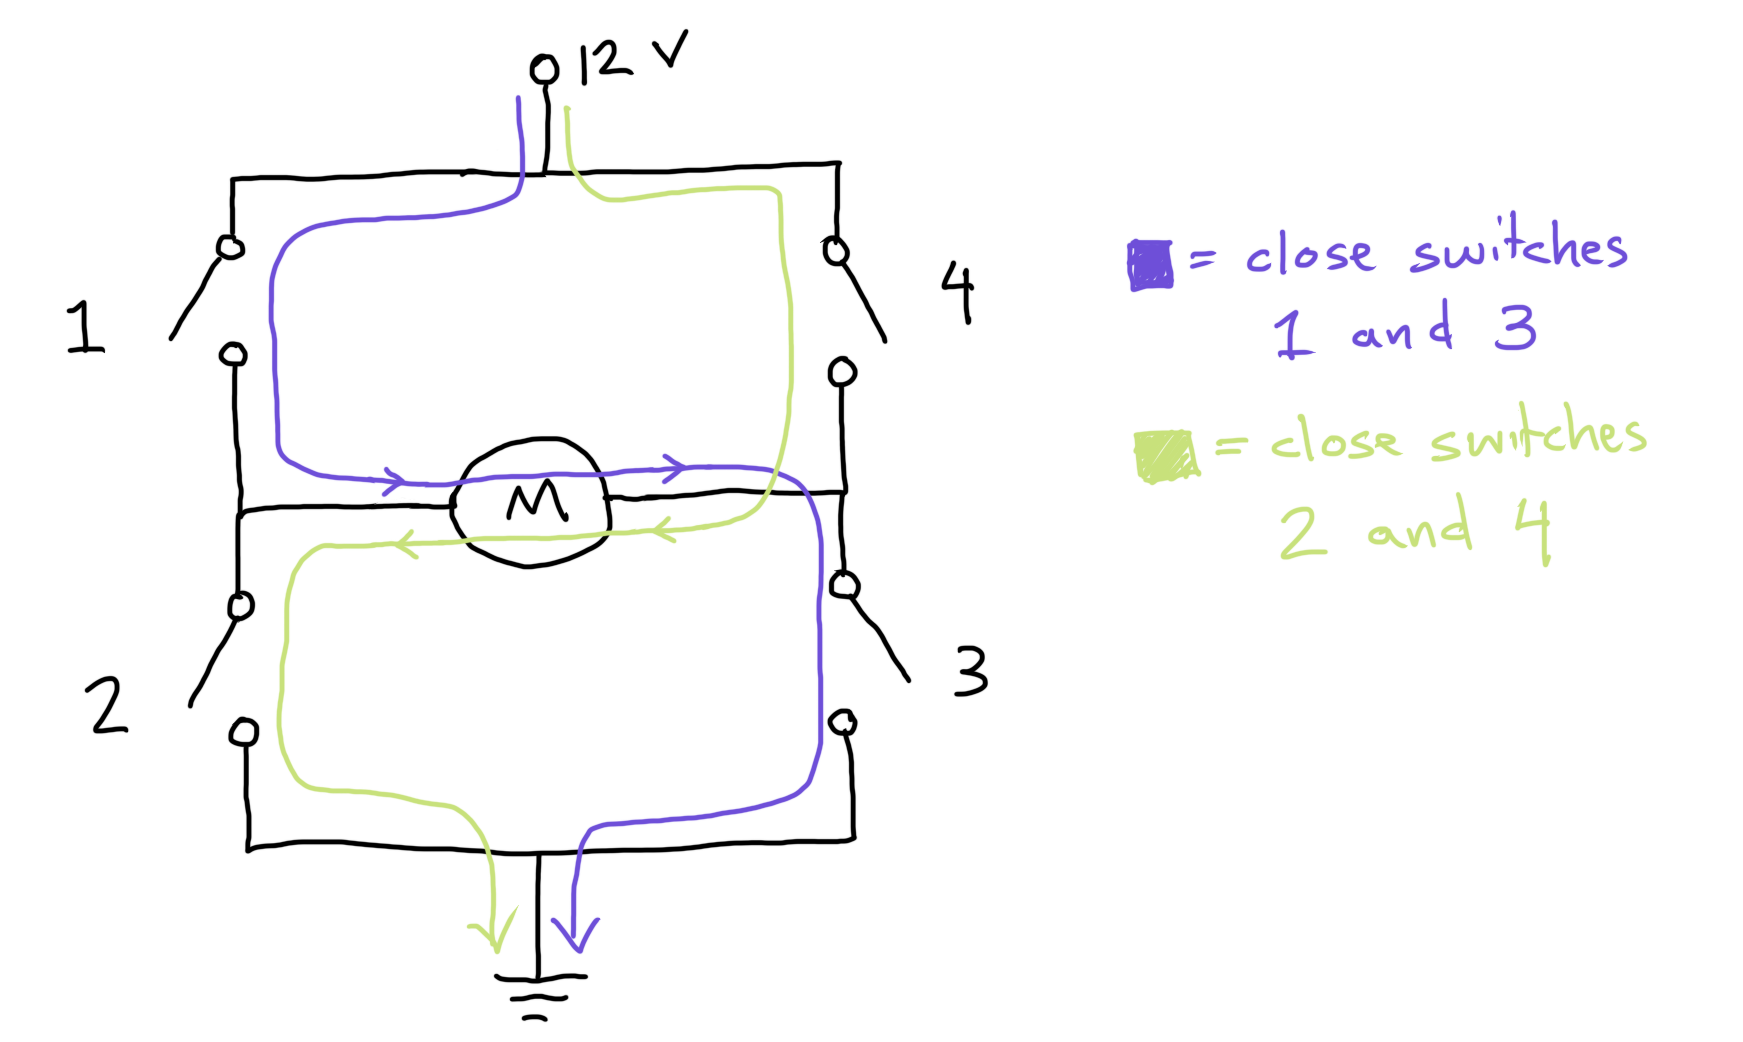 12 V
1
4
M
2
3
= close switches
1 and 3
= close switches
2 and 4